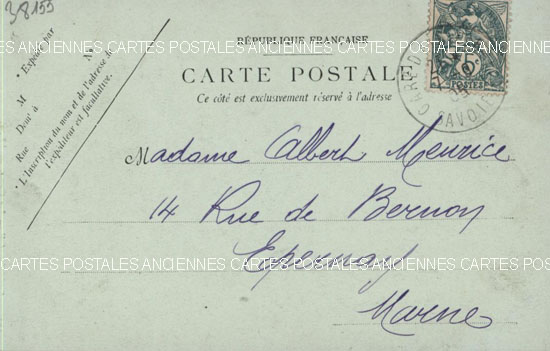 38155
RÉPUBLIQUE FRANÇAISE
CARTE POSTALE
Ce côté est exclusivement réservé à l'adresse
Expédié par
M
Demt à
Rue
N
L'inscription du nom et de l'adresse de
l'expéditeur est facultative.
5
POSTES
GARE D
SAVOIE
Madame Albert Meurice
14 Rue de Bernon
Epernay
Marne
CARTES POSTALES ANCIENNES CARTES POSTALES ANCIENNES CARTES POSTALES
CARTES POSTALES ANCIENNES CARTES POSTALES ANCIENNES CARTES POSTALES